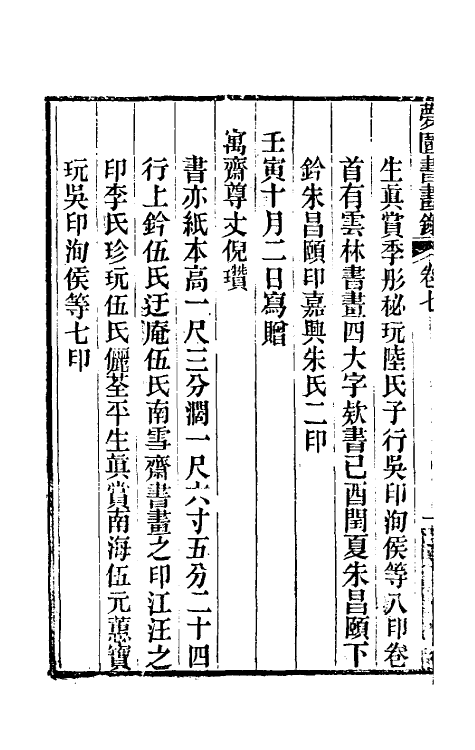 夢園書畫錄 卷七
生眞賞季彤秘玩陸氏子行吳印洵侯等八印卷
首有雲林書畫四大字欵書己酉閏夏朱昌頤下
鈐朱昌頤印嘉興朱氏二印
壬寅十月二日寫贈
寓齋尊丈倪瓚
書亦紙本高一尺三分濶一尺六寸五分二十四
行上鈐伍氏迂庵伍氏南雪齋書畫之印江汪之
印李氏珍玩伍氏儷荃平生眞賞南海伍元蕙寶
玩吳印洵侯等七印